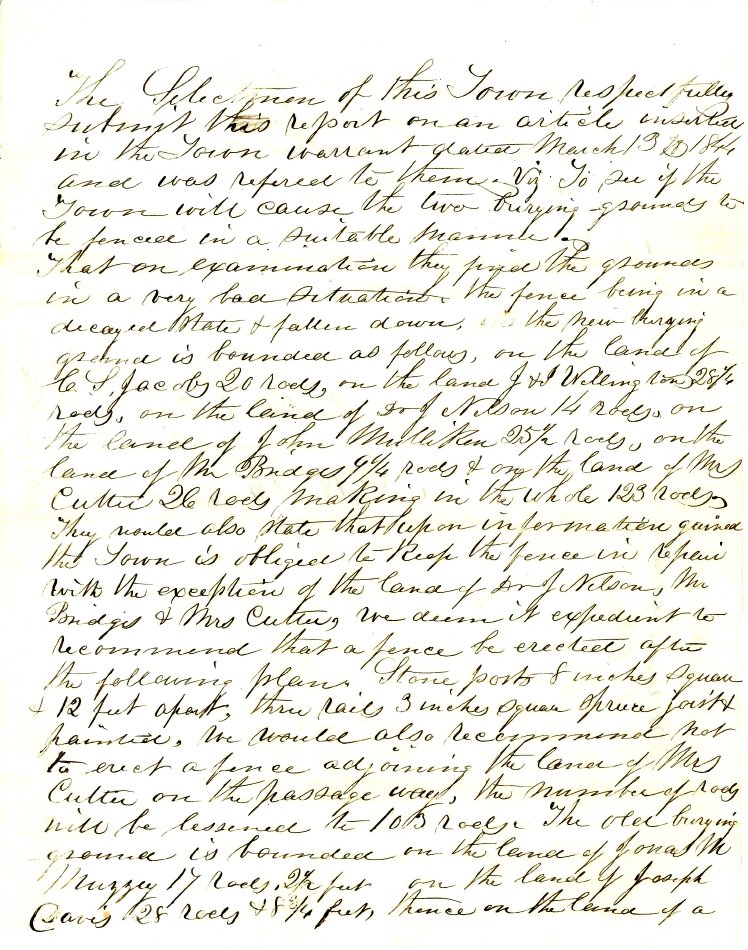 The Selectmen of this Town respectfully
submit this report on an article inserted
in the Town warrant dated March 13 1844
and was refered to them. Viz To see if the
Town will cause the two burying grounds to
be fenced in a suitable manner.
That on examination they find the grounds
in a very bad situation, the fence being in a
decayed state & fallen down, the new burying
ground is bounded as follows, on the land of
C. S. Jacobs 20 rods, on the land J & I Wellington 28 1/4
rods, on the land of Dr J Nelson 14 rods, on
the land of John Mulliken 25 1/2 rods, on the
land of Mr Bridges 9 1/4 rods & on the land of Mrs
Cutter 26 rods making in the whole 123 rods,
They would also state that upon information gained
the Town is obliged to keep the fence in repair
with the exception of the land of Dr J Nelson, Mr
Bridges & Mrs Cutter, we deem it expedient to
recommend that a fence be erected after
the following plan. Stone posts 8 inches square
& 12 feet apart, three rails 3 inches square spruce joist &
painted, we would also recommend not
to erect a fence adjoining the land of Mrs
Cutter on the passage way, the number of rods
will be lessened to 103 rods. The old burying
ground is bounded on the land of Jonas M
Muzzey 17 rods, 2 1/2 feet on the land of Joseph
Davis 28 rods & 8 3/4 feet, thence on the land of a